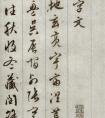 字文
地玄黃宇宙洪
盈昃辰宿列張
往秋收冬藏閏